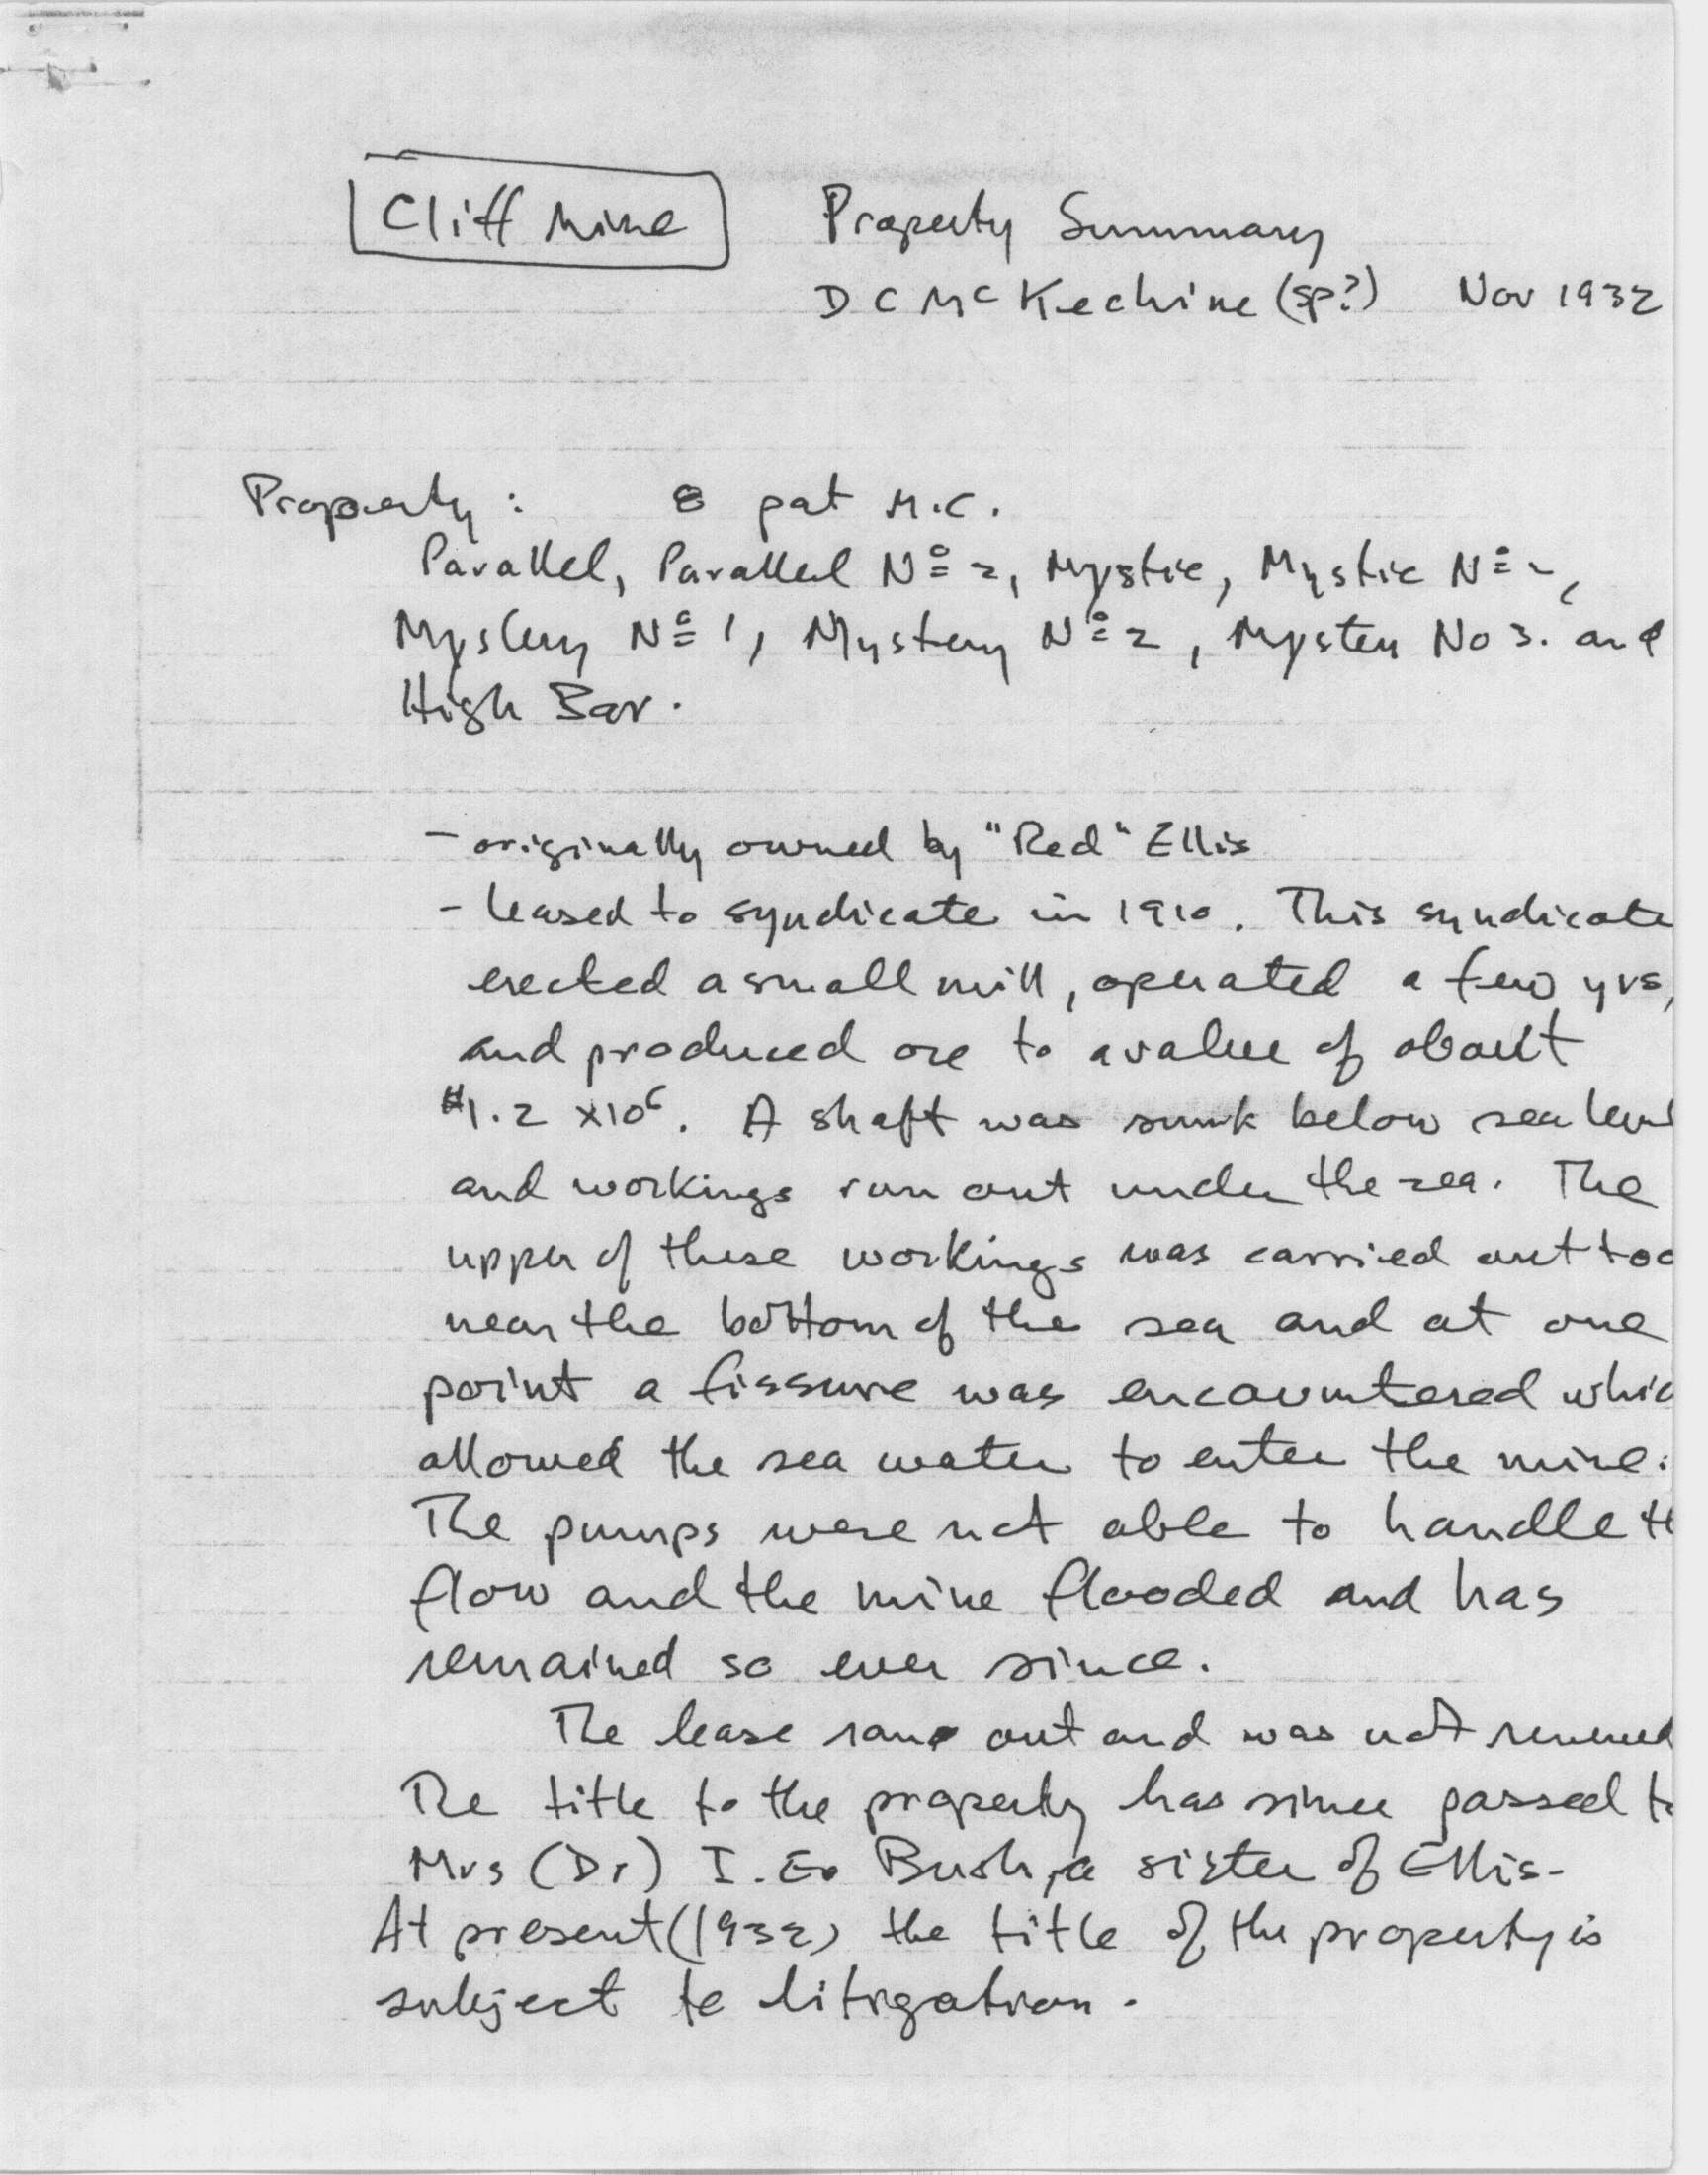 Cliff Mine Property Summary
D C McKechine (sp?) Nov 1932
Property: 8 pat M.C.
Parallel, Parallel Nº 2, Mystic, Mystic Nº 2,
Mystery Nº 1, Mystery Nº 2, Mystery No 3. and
High Bar.
- originally owned by "Red" Ellis
- leased to syndicate in 1910. This syndicate
erected a small mill, operated a few yrs,
and produced ore to a value of about
$1.2 x10⁶. A shaft was sunk below sea level
and workings run out under the sea. The
upper of these workings was carried out too
near the bottom of the sea and at one
point a fissure was encountered whic
allowed the sea water to enter the mine.
The pumps were not able to handle th
flow and the mine flooded and has
remained so ever since.
The lease ran out and was not renewed
The title to the property has since passed to
Mrs (Dr) I. E. Bush, a sister of Ellis-
At present (1932) the title of the property is
subject to litigation.